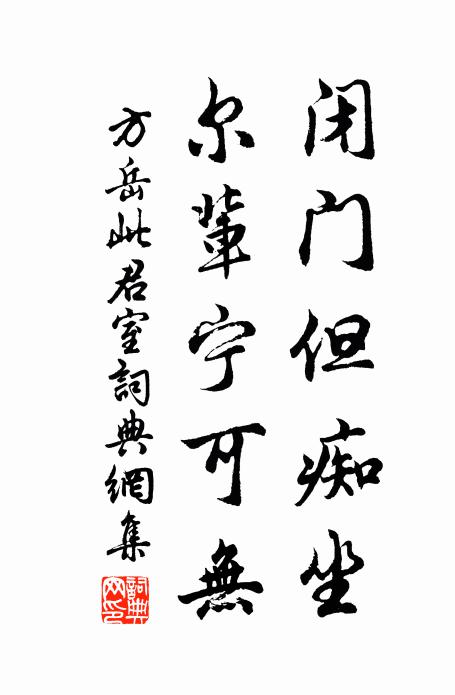 闭门但痴坐
尔辈宁可無
方岳此君室詞典網集
詞典网印